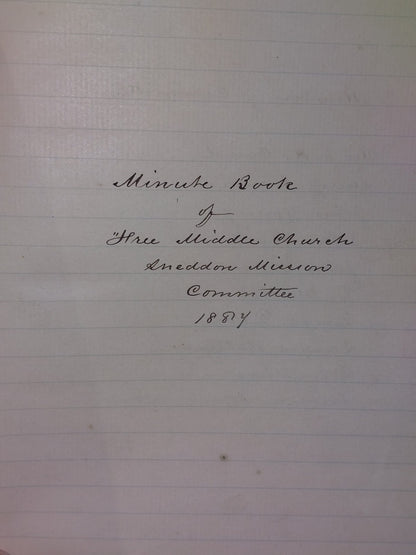 Minute Book
of
"Free Middle Church
Sneddon Mission
Committee
1887